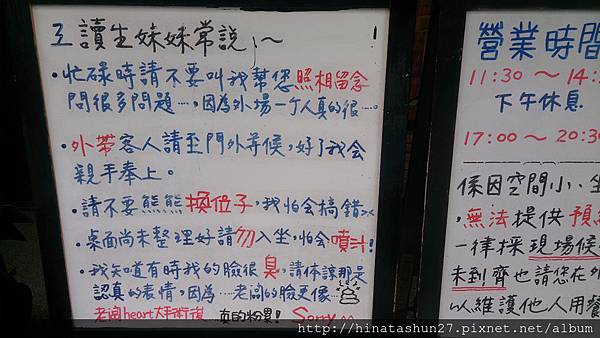 工讀生妹妹常說、~
•忙碌時請不要叫我幫您照相留念
問很多問題…,因為外場一个人真的很…。
•外帶客人請至門外等候,好了我会
親手奉上。
•請不要熊熊換位子,我怕会搞錯
•桌面尚未整理好請勿入坐,怕会噴汁!
•我知道有時我的臉很臭,請体諒那是
認真的表情,因為…老闆的臉更像…
老闆heart大手術後 真的粉累! Sorry
營業時間
11:30~14:
下午休息
17:00~20:30
係因空間小、坐
•無法提供預
一律採現場候
未到齊也請您在外
以維護他人用餐
http://hinatashun27.pixnet.net/album